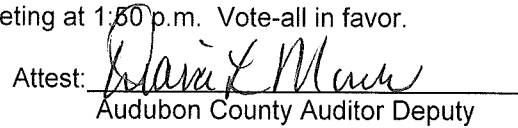 eting at 1:50 p.m. Vote-all in favor.
Attest:
Audubon County Auditor Deputy